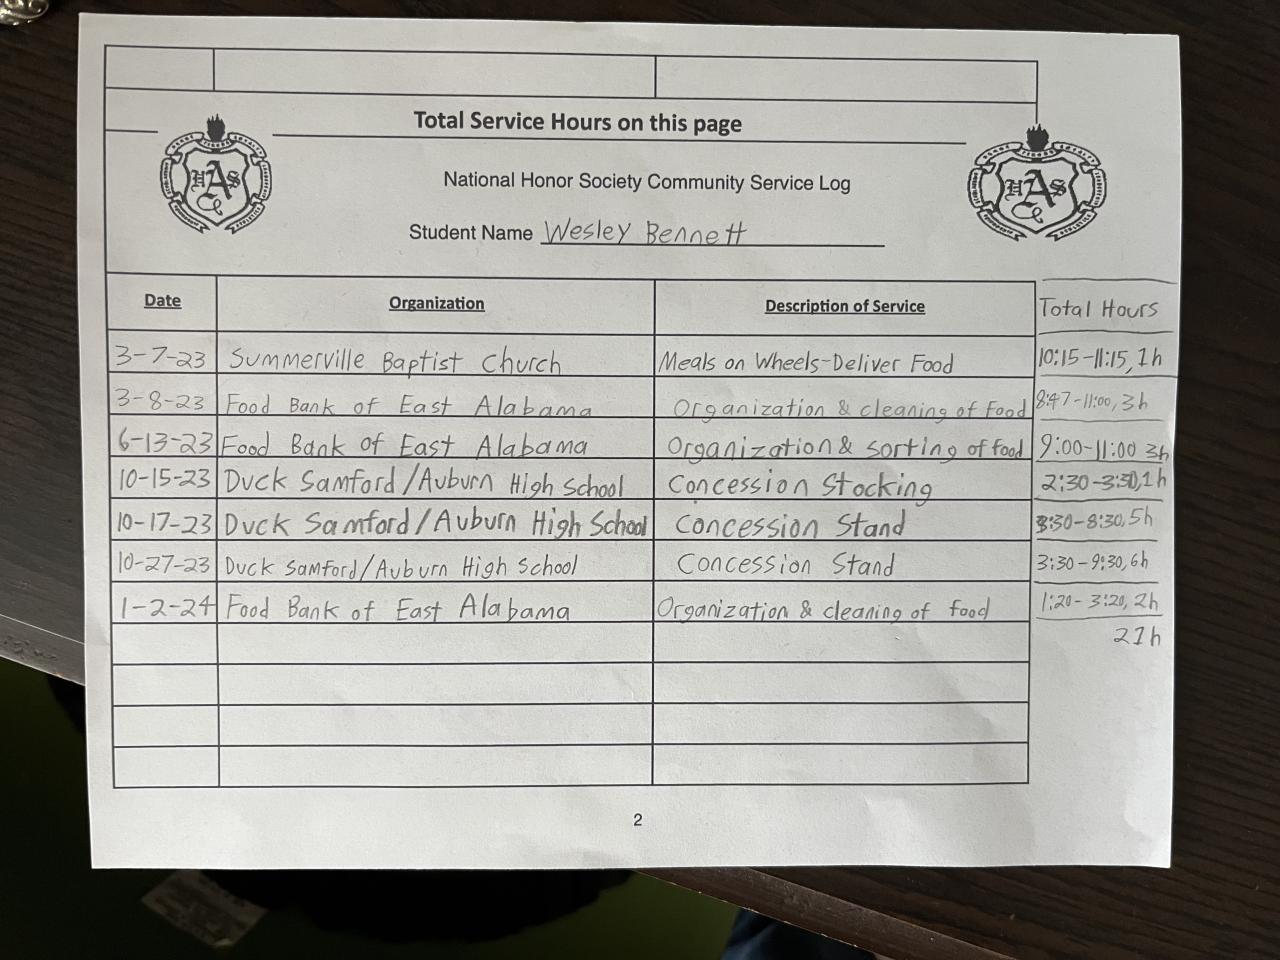 Total Service Hours on this page
National Honor Society Community Service Log
Student Name Wesley Bennett
Date Organization Description of Service Total Hours
3-7-23 Summerville Baptist Church Meals on Wheels-Deliver Food 10:15-11:15, 1h
3-8-23 Food Bank of East Alabama Organization & cleaning of food 8:47-11:00, 3h
6-13-23 Food Bank of East Alabama Organization & sorting of food 9:00-11:00 3h
10-15-23 Duck Samford/Auburn High School Concession Stocking 2:30-3:30, 1h
10-17-23 Duck Samford/Auburn High School Concession Stand 3:30-8:30, 5h
10-27-23 Duck Samford/Auburn High School Concession Stand 3:30-9:30, 6h
1-2-24 Food Bank of East Alabama Organization & cleaning of food 1:20-3:20, 2h
21h
2